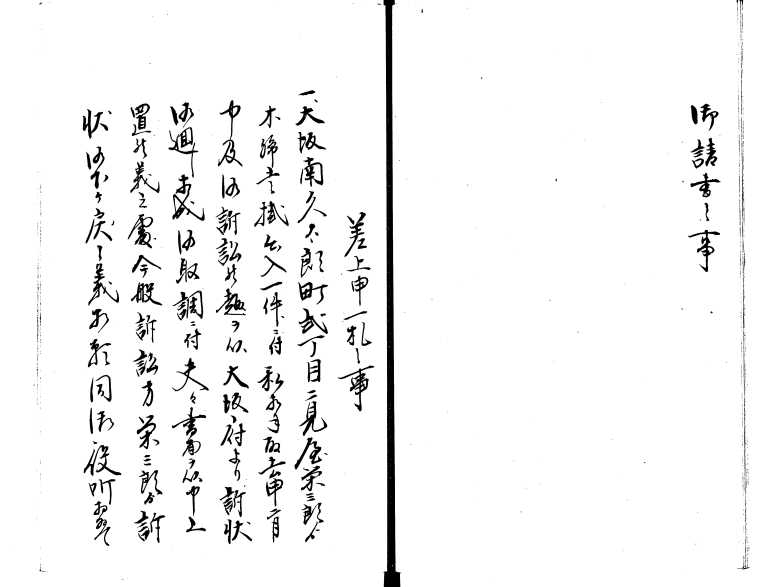 御請書之事
差上申一札之事
一大坂南久太郎町弐丁目二見屋栄三郎ゟ
木綿売掛出入一件ニ付私相手取去申二月
中及御訴訟候趣ヲ以大坂府より訴状
御廻シ相成御取調ニ付夫々書面ヲ以申上
置候義之處今般訴訟方栄三郎ゟ訴
状御下ヶ戻之義相願同御役所おゐて